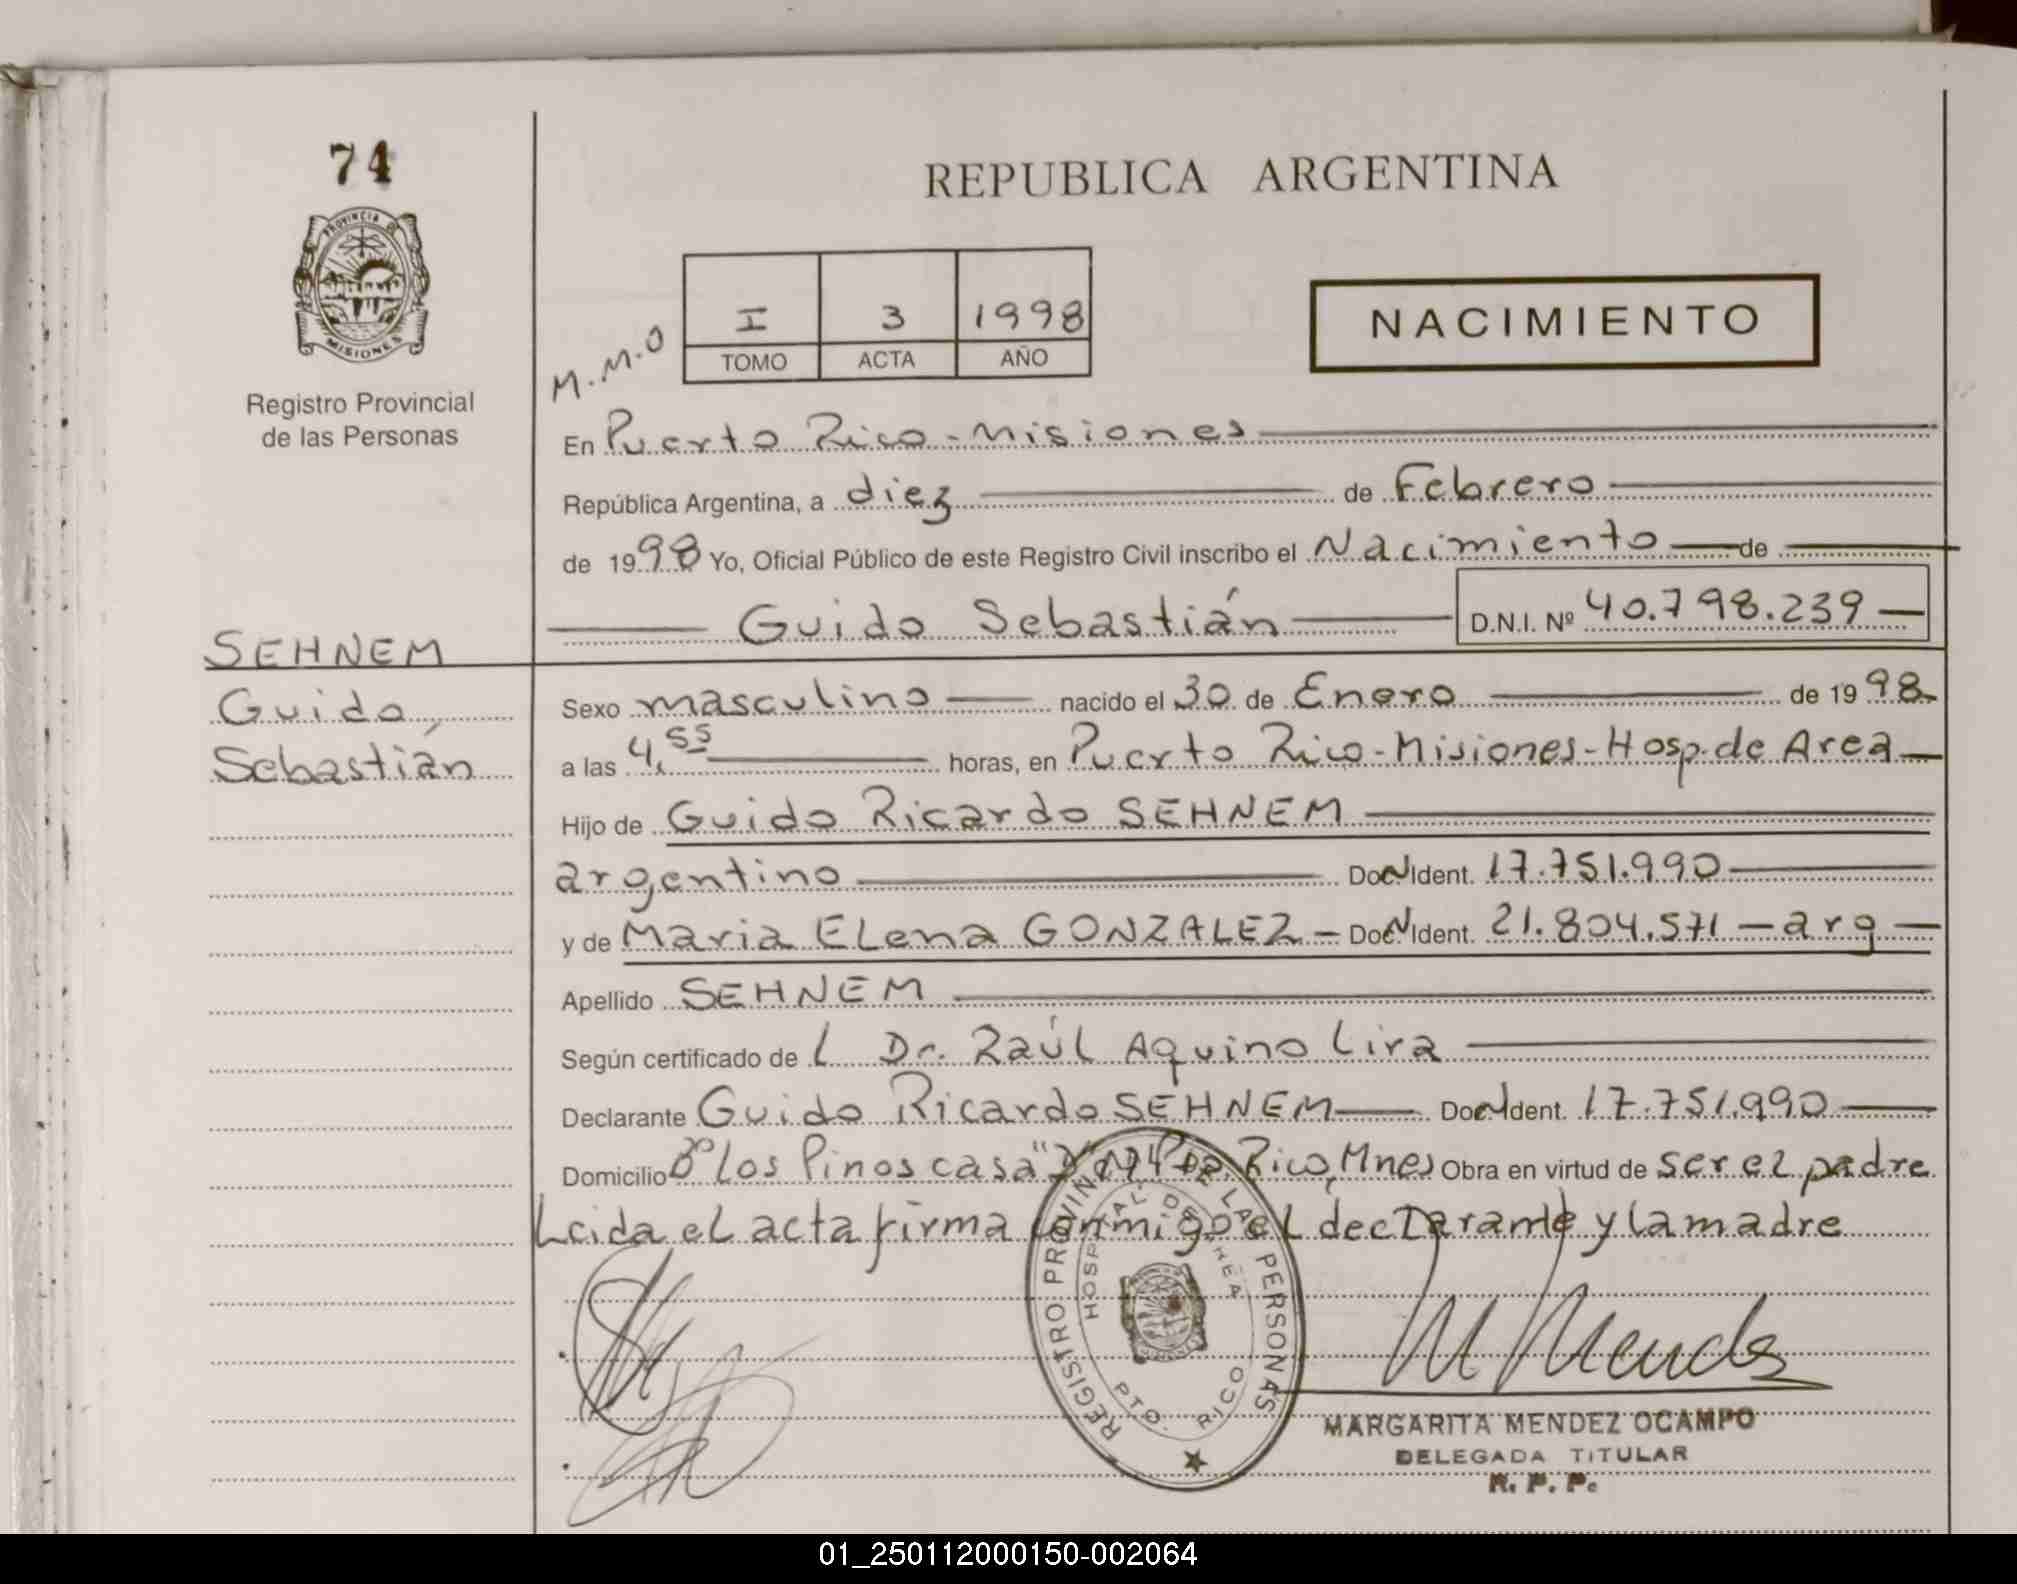 74
PROVINCIA DE
MISIONES
Registro Provincial
de las Personas
REPUBLICA ARGENTINA
M.M.O
I 3 1998
TOMO ACTA AÑO
NACIMIENTO
En Puerto Rico - Misiones
República Argentina, a diez de Febrero
de 1998 Yo, Oficial Público de este Registro Civil inscribo el Nacimiento de
Guido Sebastián D.N.I. Nº 40.798.239
SEHNEM
Guido,
Sebastián
Sexo masculino nacido el 30 de Enero de 1998
a las 4,55 horas, en Puerto Rico - Misiones - Hosp. de Area
Hijo de Guido Ricardo SEHNEM
argentino Doc N Ident. 17.751.990
y de Maria Elena GONZALEZ - Doc N Ident. 21.804.571 - arg
Apellido SEHNEM
Según certificado de l Dr. Raúl Aquino Lira
Declarante Guido Ricardo SEHNEM Doc N Ident. 17.751.990
Domicilio Bº Los Pinos casa Pto. Rico, Mnes Obra en virtud de ser el padre
Leida el acta firma conmigo el declarante y la madre
REGISTRO PROVINCIAL DE LAS PERSONAS
HOSPITAL DE AREA
PTO. RICO
M Mendez
MARGARITA MENDEZ OCAMPO
DELEGADA TITULAR
R. P. P.
01_250112000150-002064